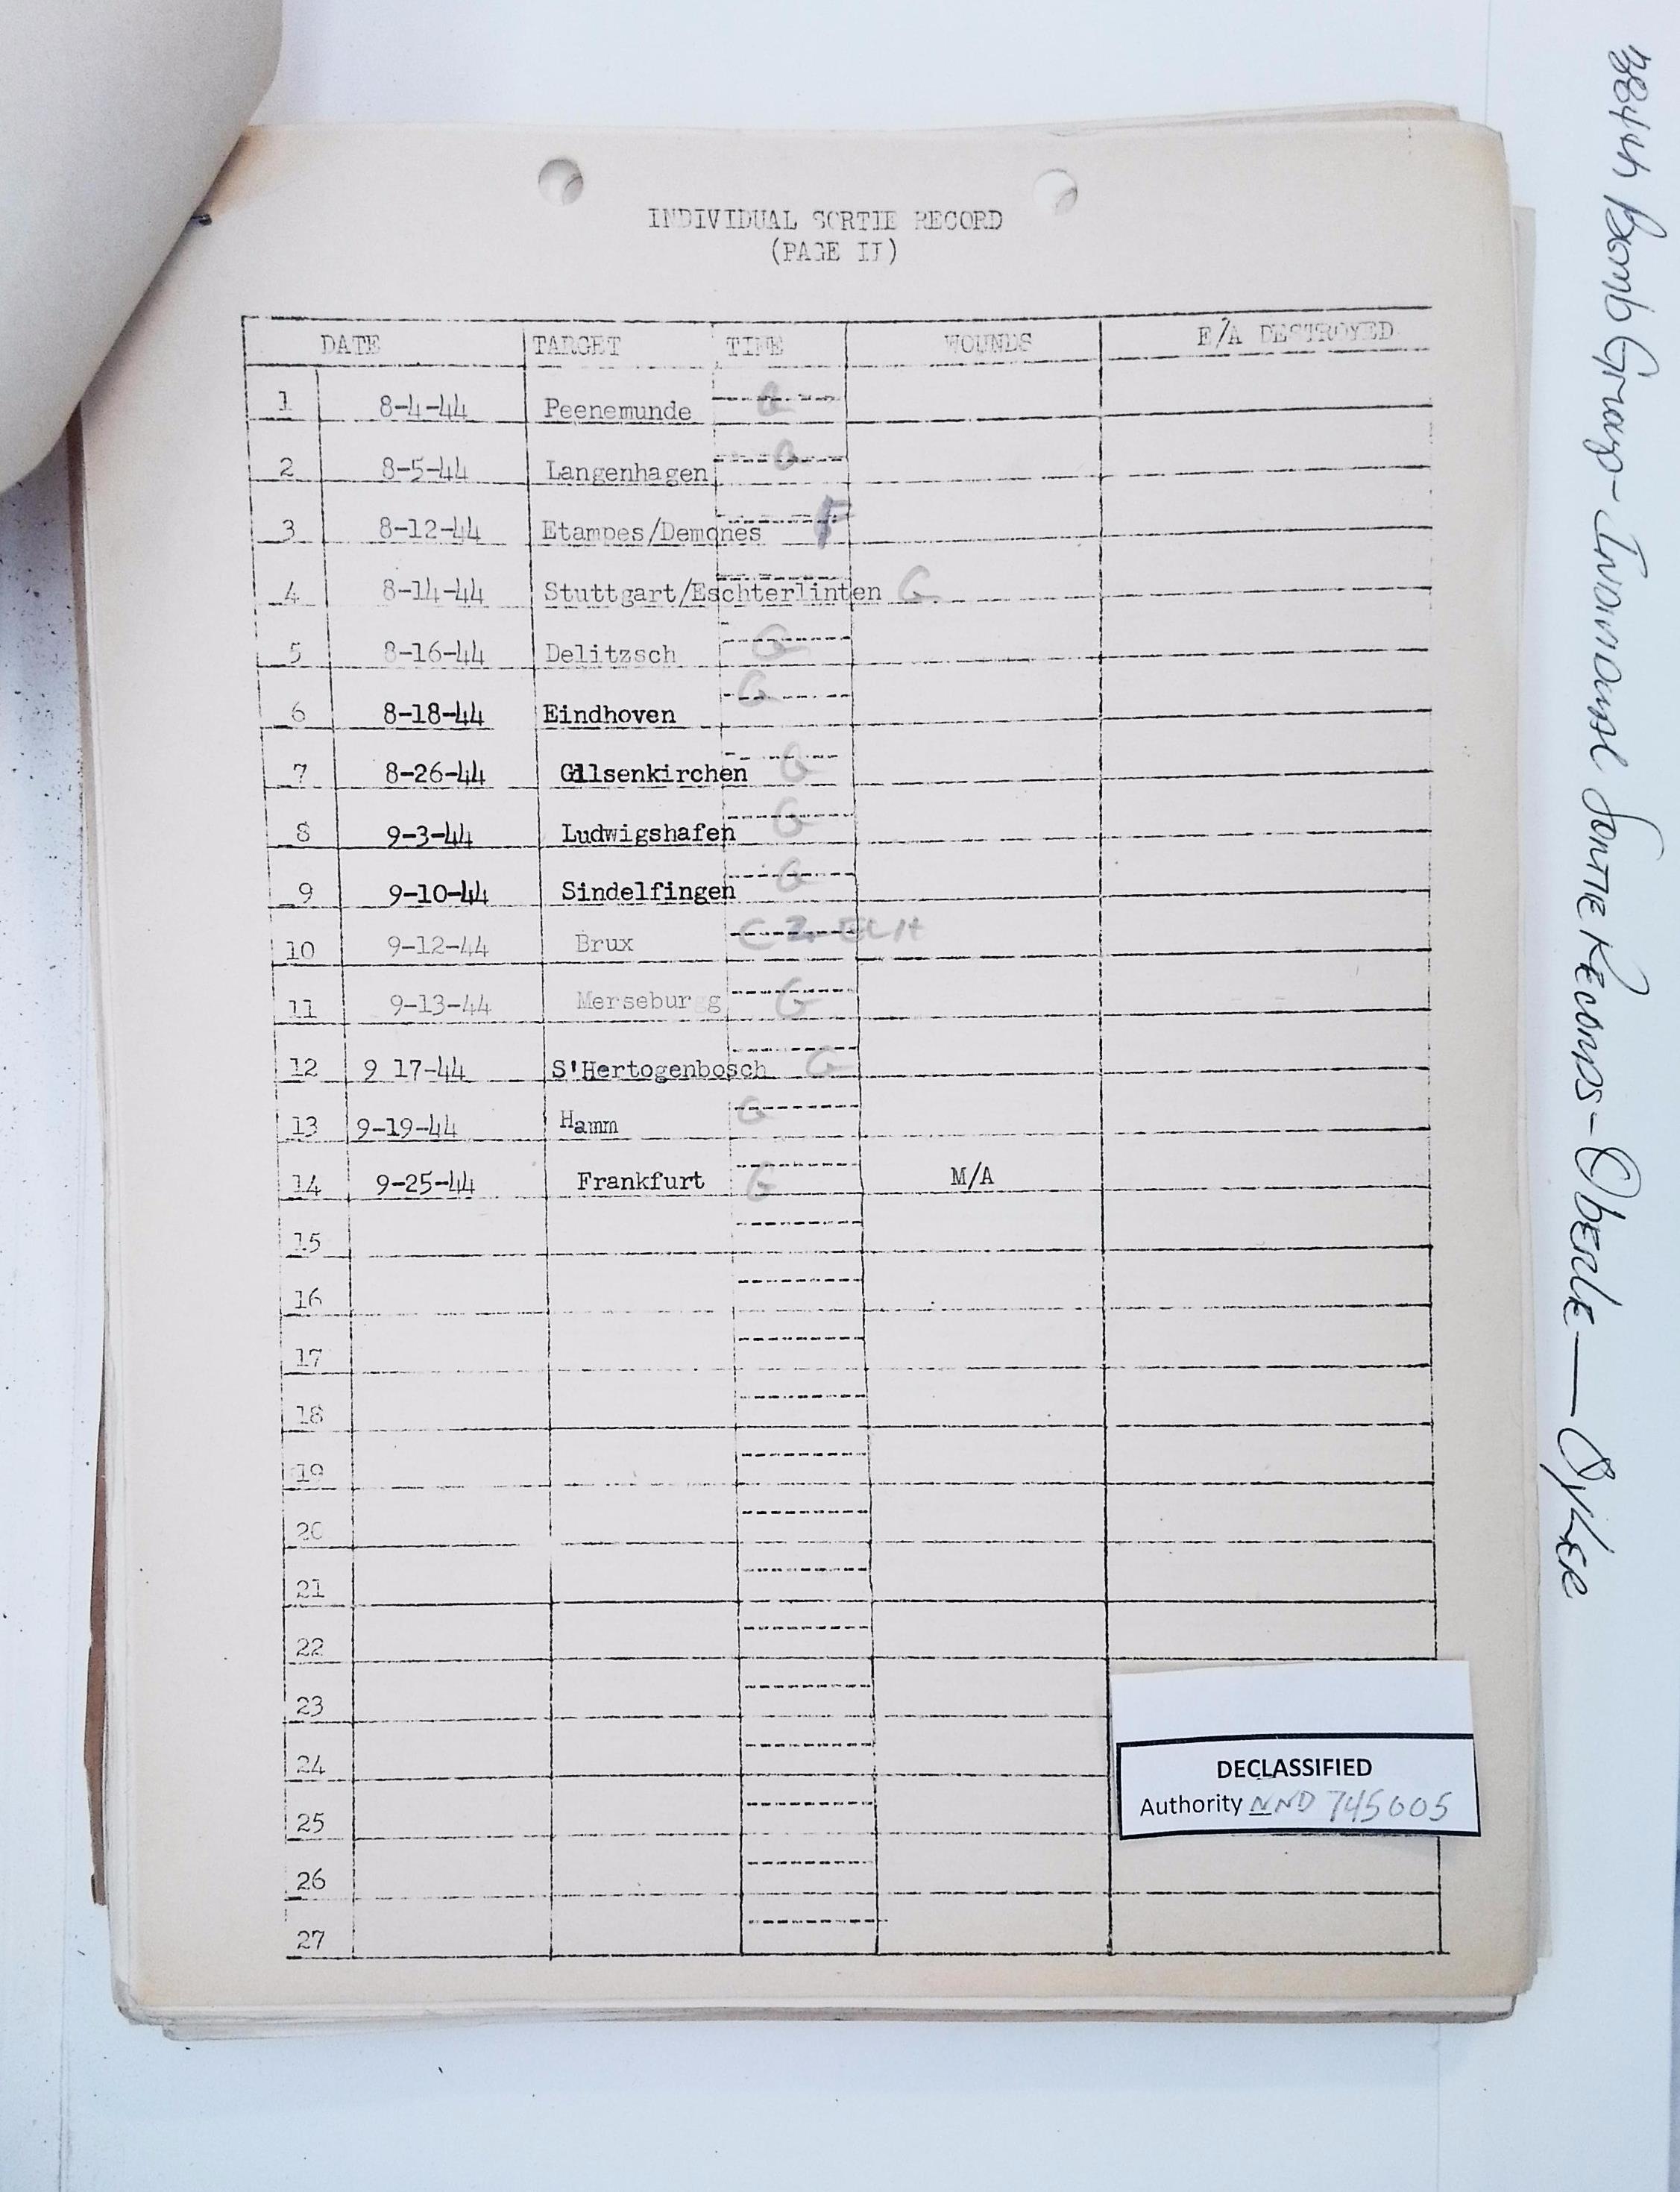 INDIVIDUAL SORTIE RECORD
(PAGE II)
DATE TARGET TIME WOUNDS E/A DESTROYED
1 8-4-44 Peenemunde G
2 8-5-44 Langenhagen G
3 8-12-44 Etampes/Demones F
4 8-14-44 Stuttgart/Eschterlinten G
5 8-16-44 Delitzsch G
6 8-18-44 Eindhoven G
7 8-26-44 Gilsenkirchen G
8 9-3-44 Ludwigshafen G
9 9-10-44 Sindelfingen G
10 9-12-44 Brux CZECH
11 9-13-44 Merseburgg G
12 9 17-44 S'Hertogenbosch G
13 9-19-44 Hamm G
14 9-25-44 Frankfurt G M/A
15
16
17
18
19
20
21
22
23
24
25
26
27
DECLASSIFIED
Authority NND 745005
384th Bomb Group- Individual Sortie Records-Oberle—Oyler